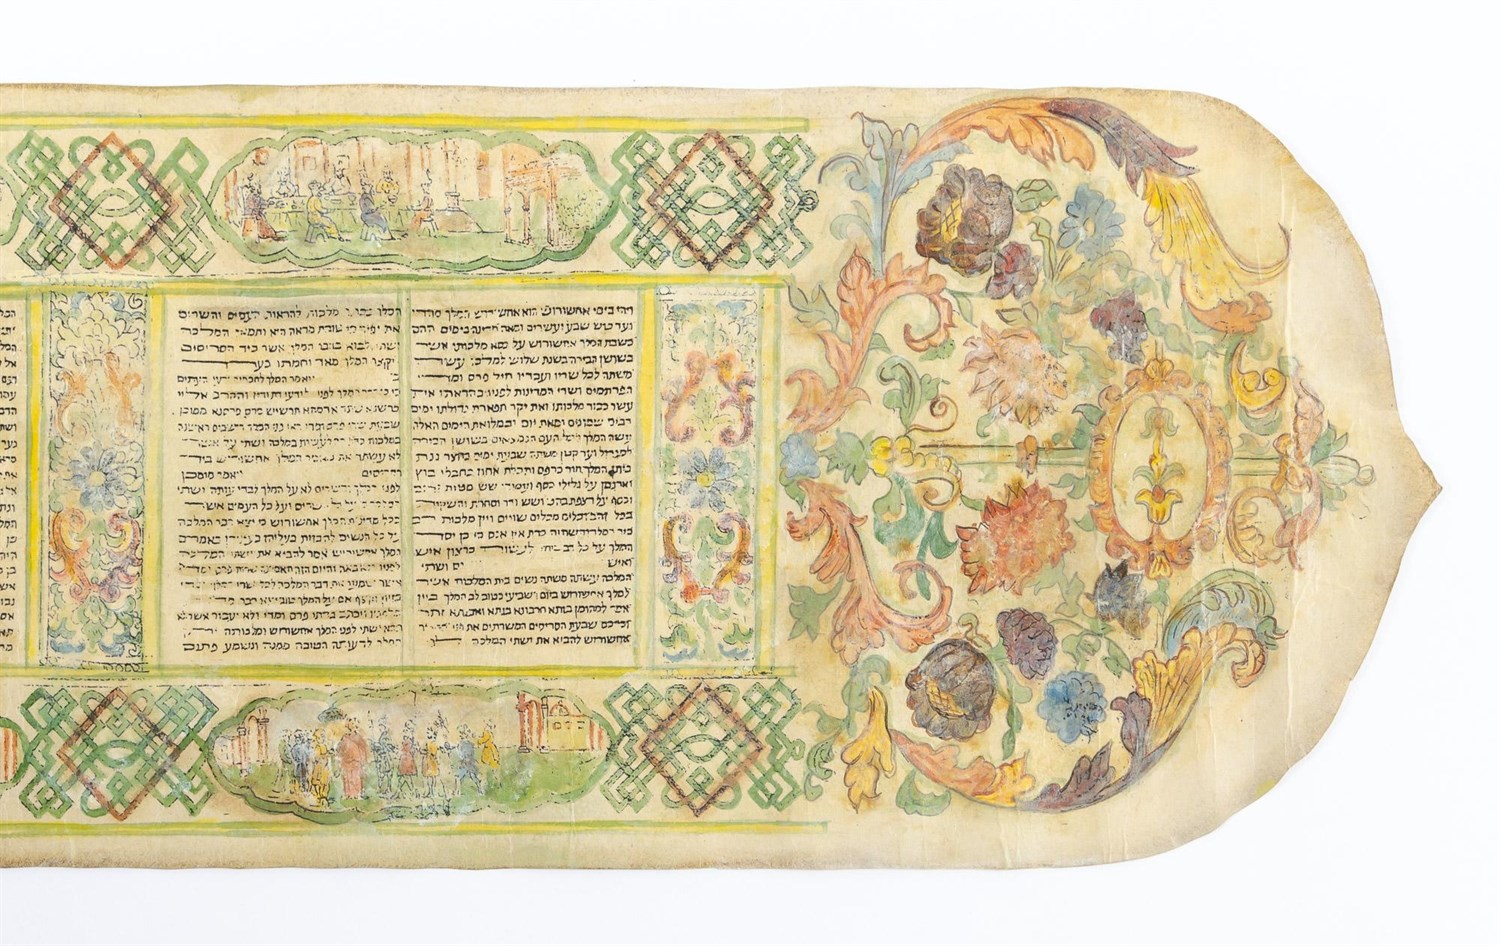 ויהי בימי אחשורוש הוא אחשורוש המלך מהדו
ועד כוש שבע ועשרים ומאה מדינה בימים ההם
כשבת המלך אחשורוש על כסא מלכותו אשר
בשושן הבירה בשנת שלוש למלכו עשה
משתה לכל שריו ועבדיו חיל פרס ומדי
הפרתמים ושרי המדינות לפניו בהראתו את
עשר כבוד מלכותו ואת יקר תפארת גדולתו ימים
רבים שמונים ומאת יום ובמלואת הימים האלה
עשה המלך לכל העם הנמצאים בשושן הבירה
למגדול ועד קטן משתה שבעת ימים בחצר גנת
ביתן המלך חור כרפס ותכלת אחוז בחבלי בוץ
וארגמן על גלילי כסף ועמודי שש מטות זהב
וכסף על רצפת בהט ושש ודר וסחרת והשקות
בכלי זהב וכלים מכלים שונים ויין מלכות רב
כיד המלך והשתיה כדת אין אנס כי כן יסד
המלך על כל רב ביתו לעשות כרצון איש
ואיש גם ושתי
המלכה עשתה משתה נשים בית המלכות אשר
למלך אחשורוש ביום השביעי כטוב לב המלך ביין
אמר למהומן בזתא חרבונא בגתא ואבגתא זתר
וכרכס שבעת הסריסים המשרתים את פני המלך
אחשורוש להביא את ושתי המלכה לפני
המלך בכתר מלכות להראות העמים והשרים
את יפיה כי טובת מראה היא ותמאן המלכה
ושתי לבוא בדבר המלך אשר ביד הסריסים
ויקצף המלך מאד וחמתו בערה
בו ויאמר המלך לחכמים ידעי העתים
כי כן דבר המלך לפני כל ידעי דת ודין והקרב אליו
כרשנא שתר אדמתא תרשיש מרס מרסנא ממוכן
שבעת שרי פרס ומדי ראי פני המלך הישבים ראשנה
במלכות כדת מה לעשות במלכה ושתי על אשר
לא עשתה את מאמר המלך אחשורוש ביד
הסריסים ויאמר מומכן
לפני המלך והשרים לא על המלך לבדו עותה ושתי
המלכה כי על כל השרים ועל כל העמים אשר
בכל מדינות המלך אחשורוש כי יצא דבר המלכה
על כל הנשים להבזות בעליהן בעיניהן באמרם
המלך אחשורוש אמר להביא את ושתי המלכה
לפניו ולא באה והיום הזה תאמרנה שרות פרס ומדי
אשר שמעו את דבר המלכה לכל שרי המלך וכדי
בזיון וקצף אם על המלך טוב יצא דבר מלכות
מלפניו ויכתב בדתי פרס ומדי ולא יעבור אשר לא
תבוא ושתי לפני המלך אחשורוש ומלכותה יתן
המלך לרעותה הטובה ממנה ונשמע פתגם